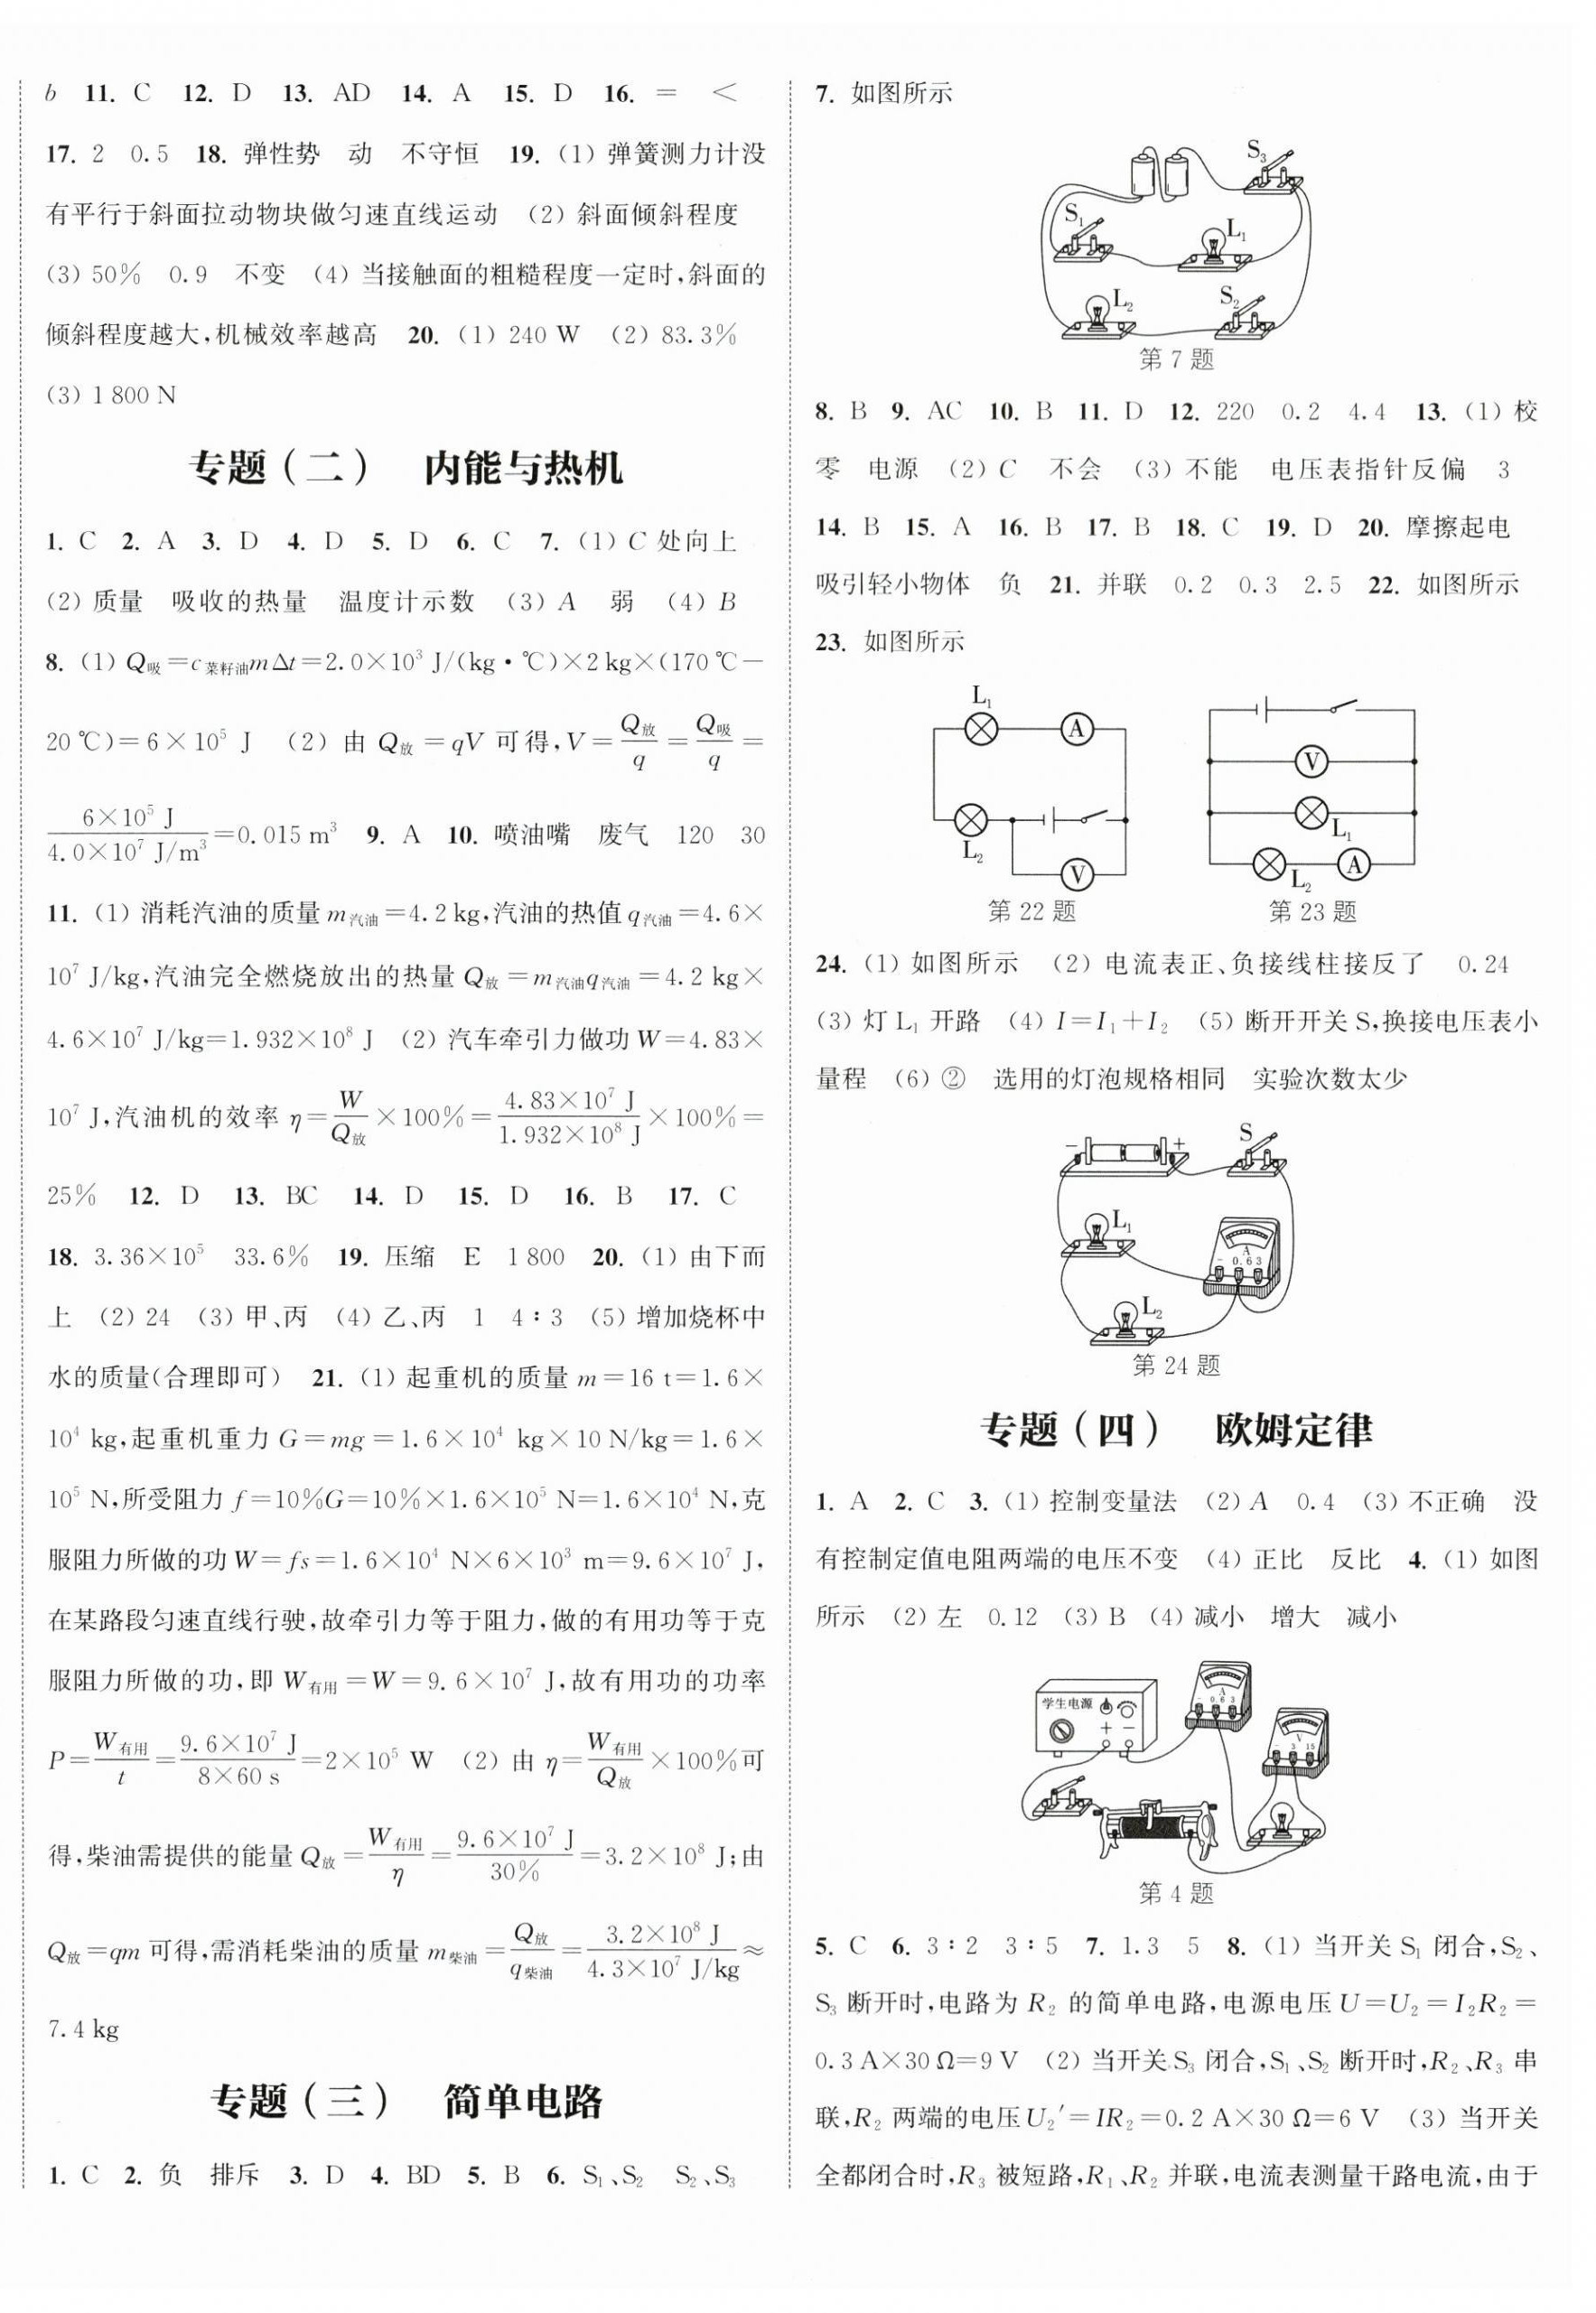 b 11. C 12. D 13. AD 14. A 15. D 16. = <
17. 2 0.5 18. 弹性势 动 不守恒 19. (1) 弹簧测力计没
有平行于斜面拉动物块做匀速直线运动 (2) 斜面倾斜程度
(3) 50% 0.9 不变 (4) 当接触面的粗糙程度一定时,斜面的
倾斜程度越大,机械效率越高 20. (1) 240 W (2) 83.3%
(3) 1 800 N
专题(二) 内能与热机
1. C 2. A 3. D 4. D 5. D 6. C 7. (1) C 处向上
(2) 质量 吸收的热量 温度计示数 (3) A 弱 (4) B
8. (1) Q吸=c菜籽油mΔt=2.0×10³ J/(kg·℃)×2 kg×(170 ℃-
20 ℃)=6×10⁵ J (2) 由 Q放=qV 可得,V=Q放/q=Q吸/q=
6×10⁵ J/4.0×10⁷ J/m³=0.015 m³ 9. A 10. 喷油嘴 废气 120 30
11. (1) 消耗汽油的质量 m汽油=4.2 kg,汽油的热值 q汽油=4.6×
10⁷ J/kg,汽油完全燃烧放出的热量 Q放=m汽油q汽油=4.2 kg×
4.6×10⁷ J/kg=1.932×10⁸ J (2) 汽车牵引力做功 W=4.83×
10⁷ J,汽油机的效率 η=W/Q放×100%=4.83×10⁷ J/1.932×10⁸ J×100%=
25% 12. D 13. BC 14. D 15. D 16. B 17. C
18. 3.36×10⁵ 33.6% 19. 压缩 E 1 800 20. (1) 由下而
上 (2) 24 (3) 甲、丙 (4) 乙、丙 1 4∶3 (5) 增加烧杯中
水的质量(合理即可) 21. (1) 起重机的质量 m=16 t=1.6×
10⁴ kg,起重机重力 G=mg=1.6×10⁴ kg×10 N/kg=1.6×
10⁵ N,所受阻力 f=10%G=10%×1.6×10⁵ N=1.6×10⁴ N,克
服阻力所做的功 W=fs=1.6×10⁴ N×6×10³ m=9.6×10⁷ J,
在某路段匀速直线行驶,故牵引力等于阻力,做的有用功等于克
服阻力所做的功,即 W有用=W=9.6×10⁷ J,故有用功的功率
P=W有用/t=9.6×10⁷ J/8×60 s=2×10⁵ W (2) 由 η=W有用/Q放×100%可
得,柴油需提供的能量 Q放=W有用/η=9.6×10⁷ J/30%=3.2×10⁸ J;由
Q放=qm 可得,需消耗柴油的质量 m柴油=Q放/q柴油=3.2×10⁸ J/4.3×10⁷ J/kg≈
7.4 kg
专题(三) 简单电路
1. C 2. 负 排斥 3. D 4. BD 5. B 6. S₁、S₂ S₂、S₃
7. 如图所示
S₃
S₁
L₁
L₂
S₂
第 7 题
8. B 9. AC 10. B 11. D 12. 220 0.2 4.4 13. (1) 校
零 电源 (2) C 不会 (3) 不能 电压表指针反偏 3
14. B 15. A 16. B 17. B 18. C 19. D 20. 摩擦起电
吸引轻小物体 负 21. 并联 0.2 0.3 2.5 22. 如图所示
23. 如图所示
L₁
A
L₂
V
第 22 题
V
L₁
L₂
A
第 23 题
24. (1) 如图所示 (2) 电流表正、负接线柱接反了 0.24
(3) 灯 L₁ 开路 (4) I=I₁+I₂ (5) 断开开关 S,换接电压表小
量程 (6) ② 选用的灯泡规格相同 实验次数太少
- +
S
L₁
A
- 0.6 3
L₂
第 24 题
专题(四) 欧姆定律
1. A 2. C 3. (1) 控制变量法 (2) A 0.4 (3) 不正确 没
有控制定值电阻两端的电压不变 (4) 正比 反比 4. (1) 如图
所示 (2) 左 0.12 (3) B (4) 减小 增大 减小
学生电源
+ -
A
- 0.6 3
V
- 3 15
第 4 题
5. C 6. 3∶2 3∶5 7. 1.3 5 8. (1) 当开关 S₁ 闭合,S₂、
S₃ 断开时,电路为 R₂ 的简单电路,电源电压 U=U₂=I₂R₂=
0.3 A×30 Ω=9 V (2) 当开关 S₃ 闭合,S₁、S₂ 断开时,R₂、R₃ 串
联,R₂ 两端的电压 U₂′=IR₂=0.2 A×30 Ω=6 V (3) 当开关
全都闭合时,R₃ 被短路,R₁、R₂ 并联,电流表测量干路电流,由于